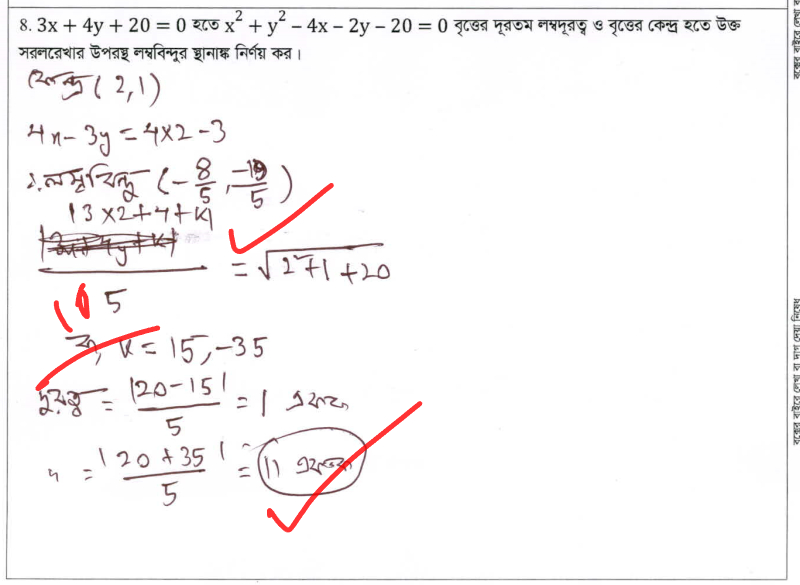 8. 3x + 4y + 20 = 0 হতে x² + y² − 4x − 2y − 20 = 0 বৃত্তের দূরতম লম্বদূরত্ব ও বৃত্তের কেন্দ্র হতে উক্ত
সরলরেখার উপরস্থ লম্ববিন্দুর স্থানাঙ্ক নির্ণয় কর।
কেন্দ্র (2,1)
4x − 3y = 4×2 − 3
∴ লম্ববিন্দু (−8/5, −19/5)
|3×2+4+k|
/5 = √(2²+1+20)
10
k = 15, −35
দূরত্ব = |20−15|/5 = 1 একক
" = |20+35|/5 = 11 একক